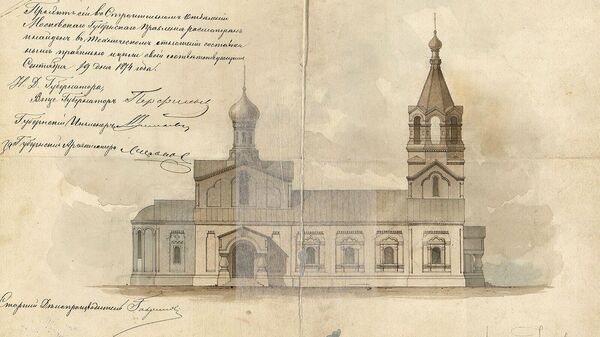 Проэктъ сей въ Строительномъ Отдѣленіи
Московскаго Губернскаго Правленія разсматриванъ
и найденъ въ техническомъ отношеніи составлен-
нымъ правильно и цѣли своей соотвѣтствующимъ
Сентября 19 дня 1874 года.
И. Д. Губернатора,
Вице Губернаторъ
Губернскій Инженеръ
За Губернскій Архитекторъ
Старшій Дѣлопроизводитель